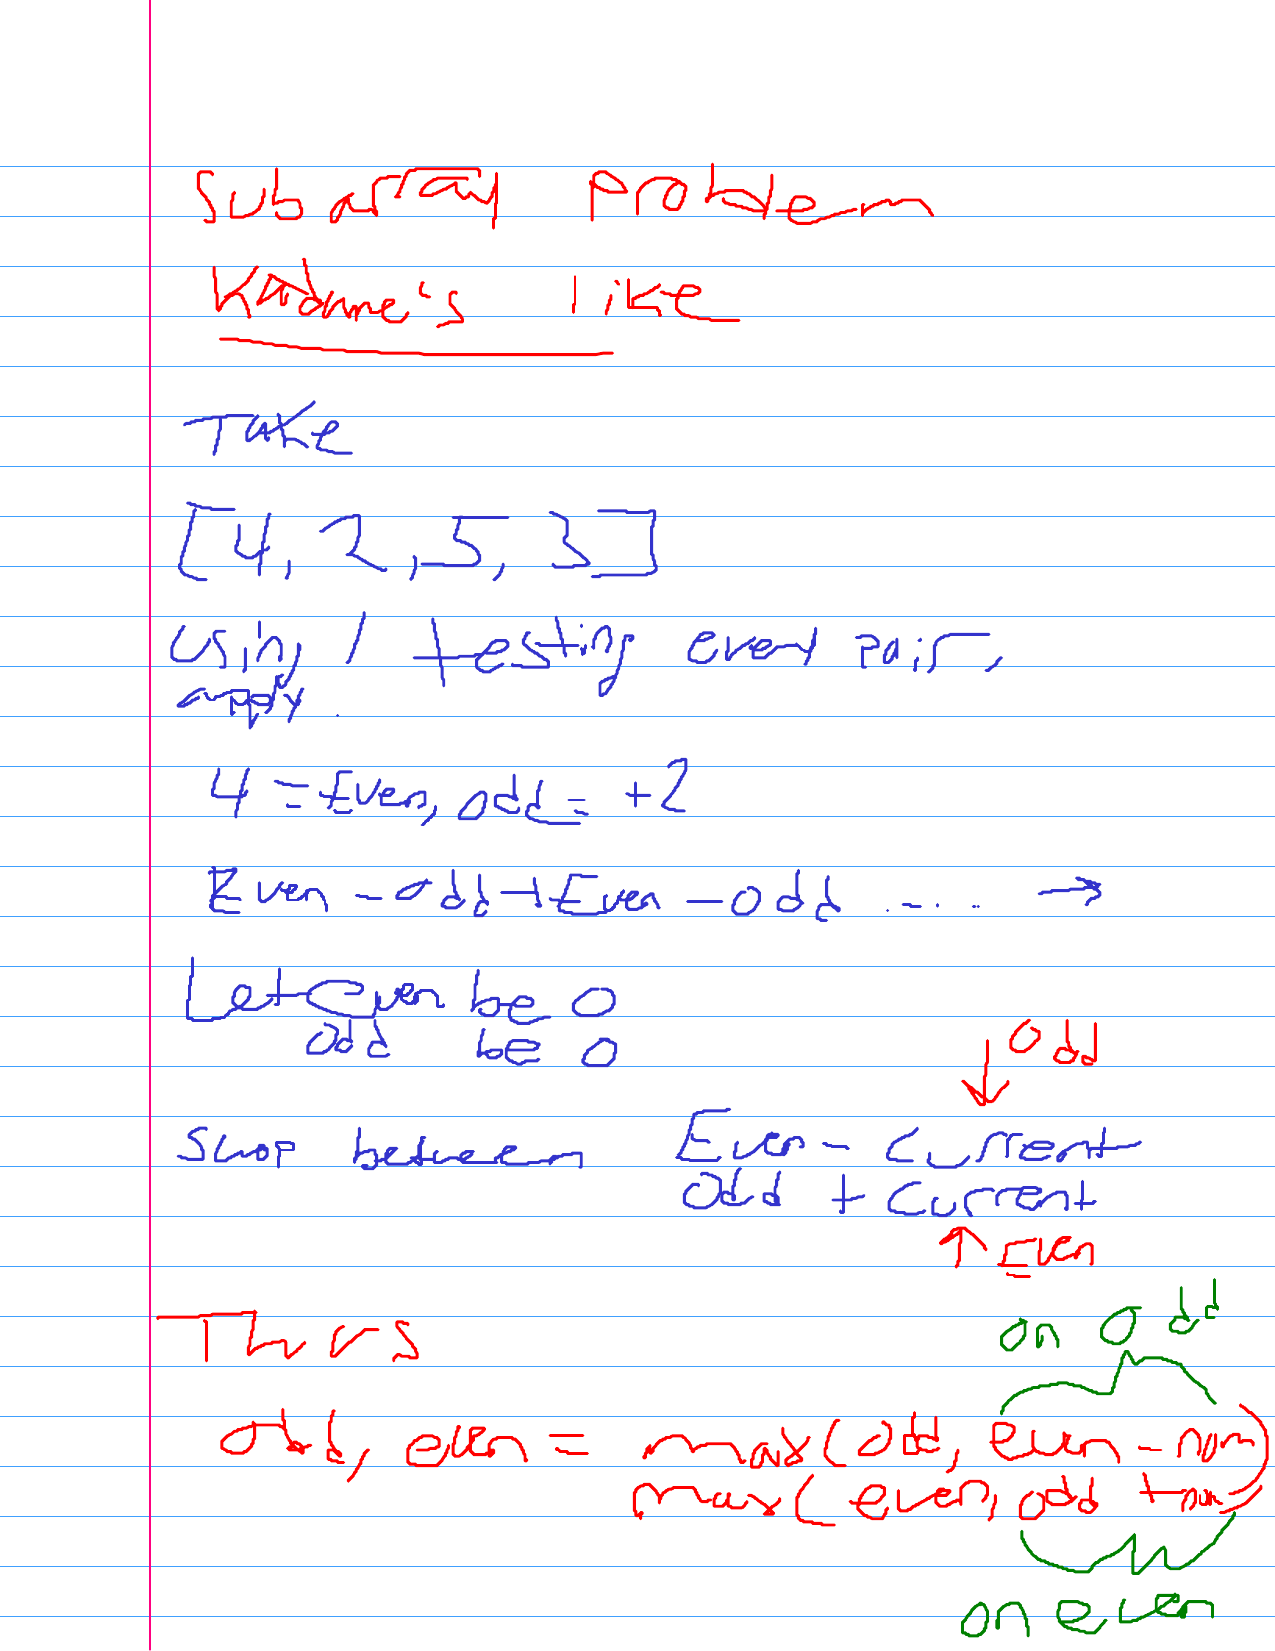 Subarray Problem
Kadane's like
Take
[4, 2, 5, 3]
Using 1 testing every pair,
apply.
4 = Even, odd = +2
Even - odd + Even - odd ..... →
Let Even be 0
odd be 0
↓ Odd
Swap between Even - Current
Odd + Current
↑ Even
Thus
on Odd
odd, even = max(odd, even - num)
max(even, odd + num)
on even